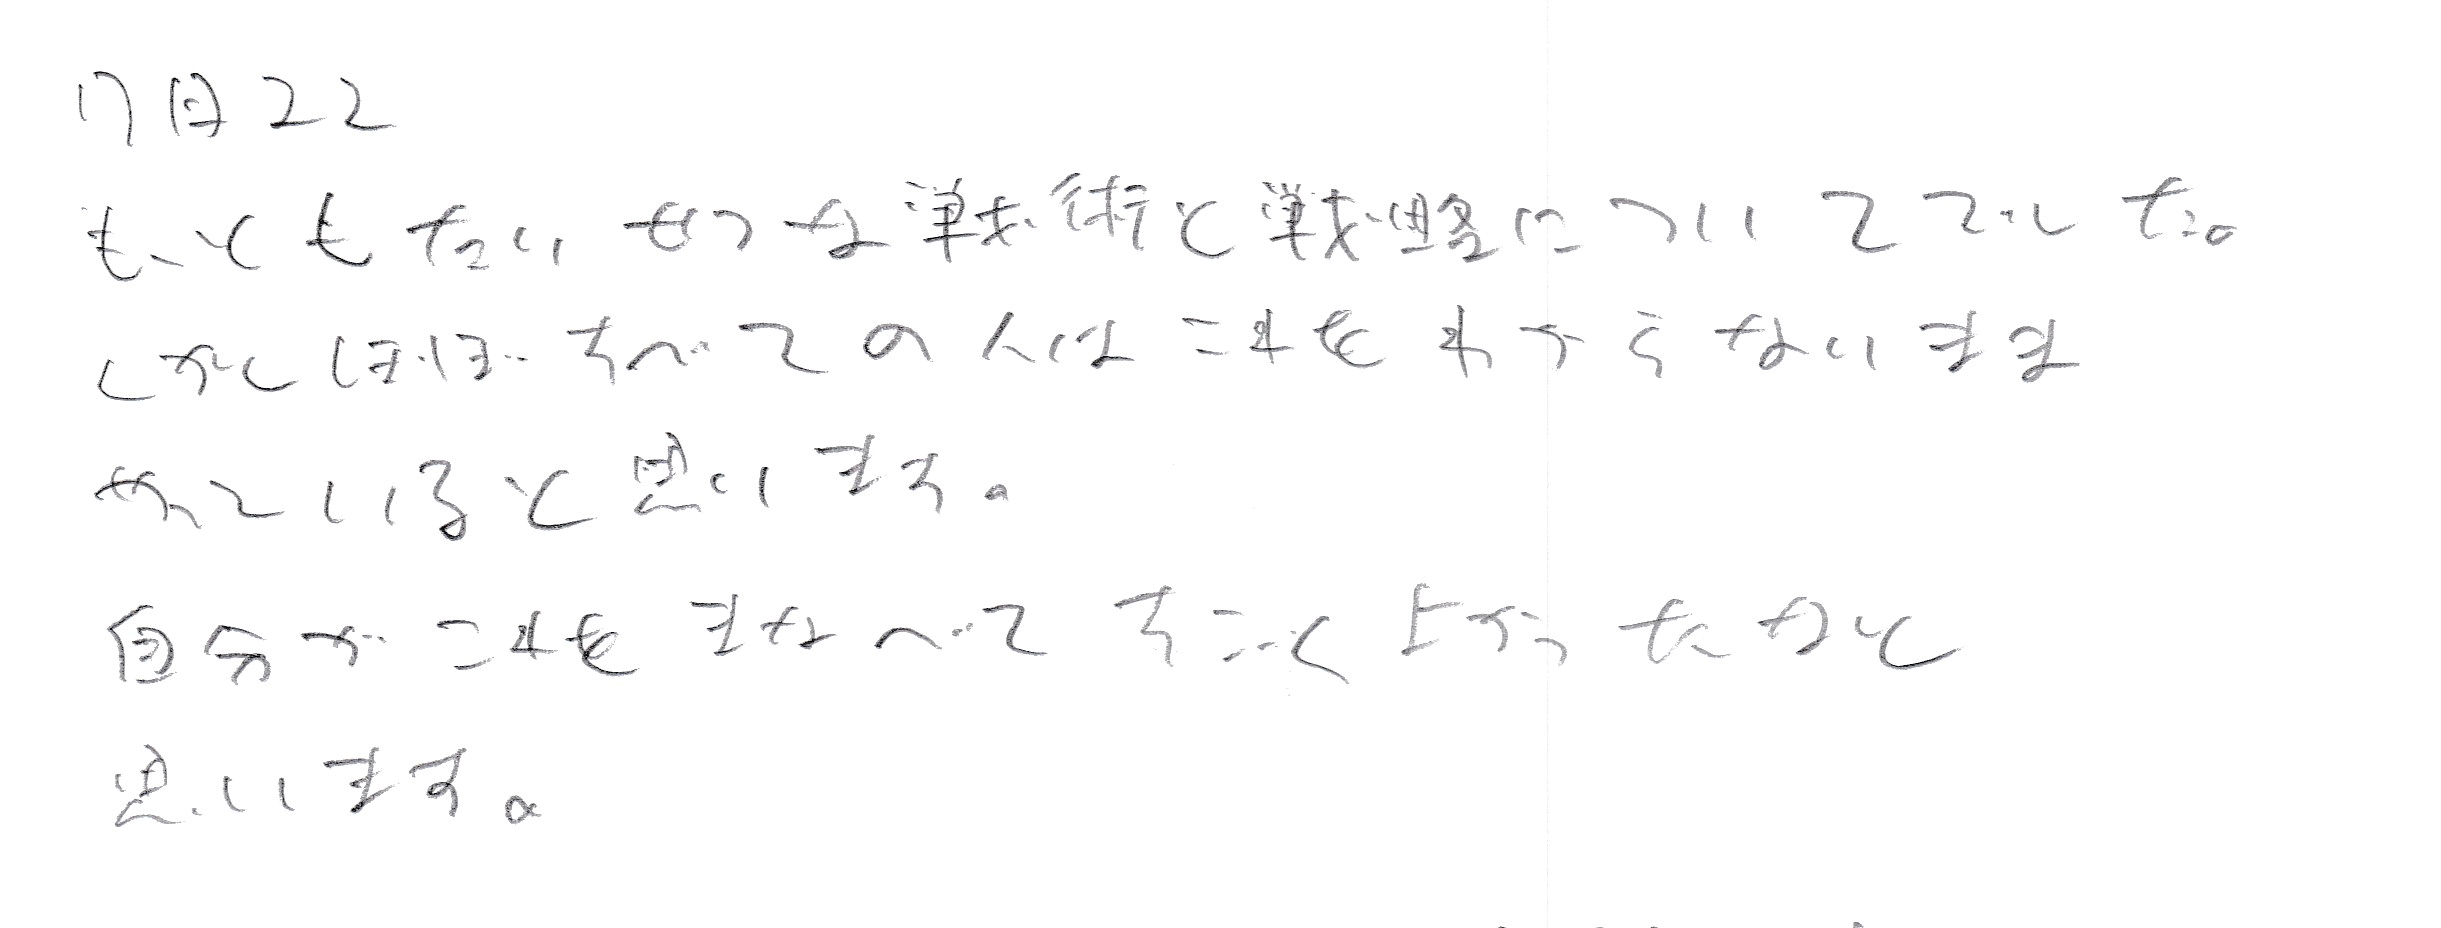 7月22
もっともたいせつな戦術と戦略についてでした。
しかしほぼすべての人はこれをわからないまま
やっていると思います。
自分がこれをまなべてすごく上がったなと
思います。